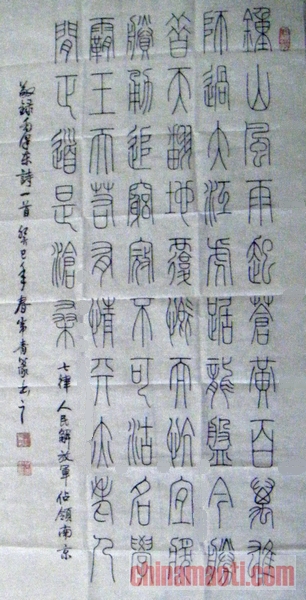 鍾山風雨起蒼黃百萬雄
師過大江虎踞龍盤今勝
昔天翻地覆慨而忼宜將
賸勇追窮寇不可沽名學
霸王天若有情天亦老人
間正道是滄桑
七律 人民解放軍佔領南京
敬録毛澤東詩一首 癸巳年春
chinamaoti.com